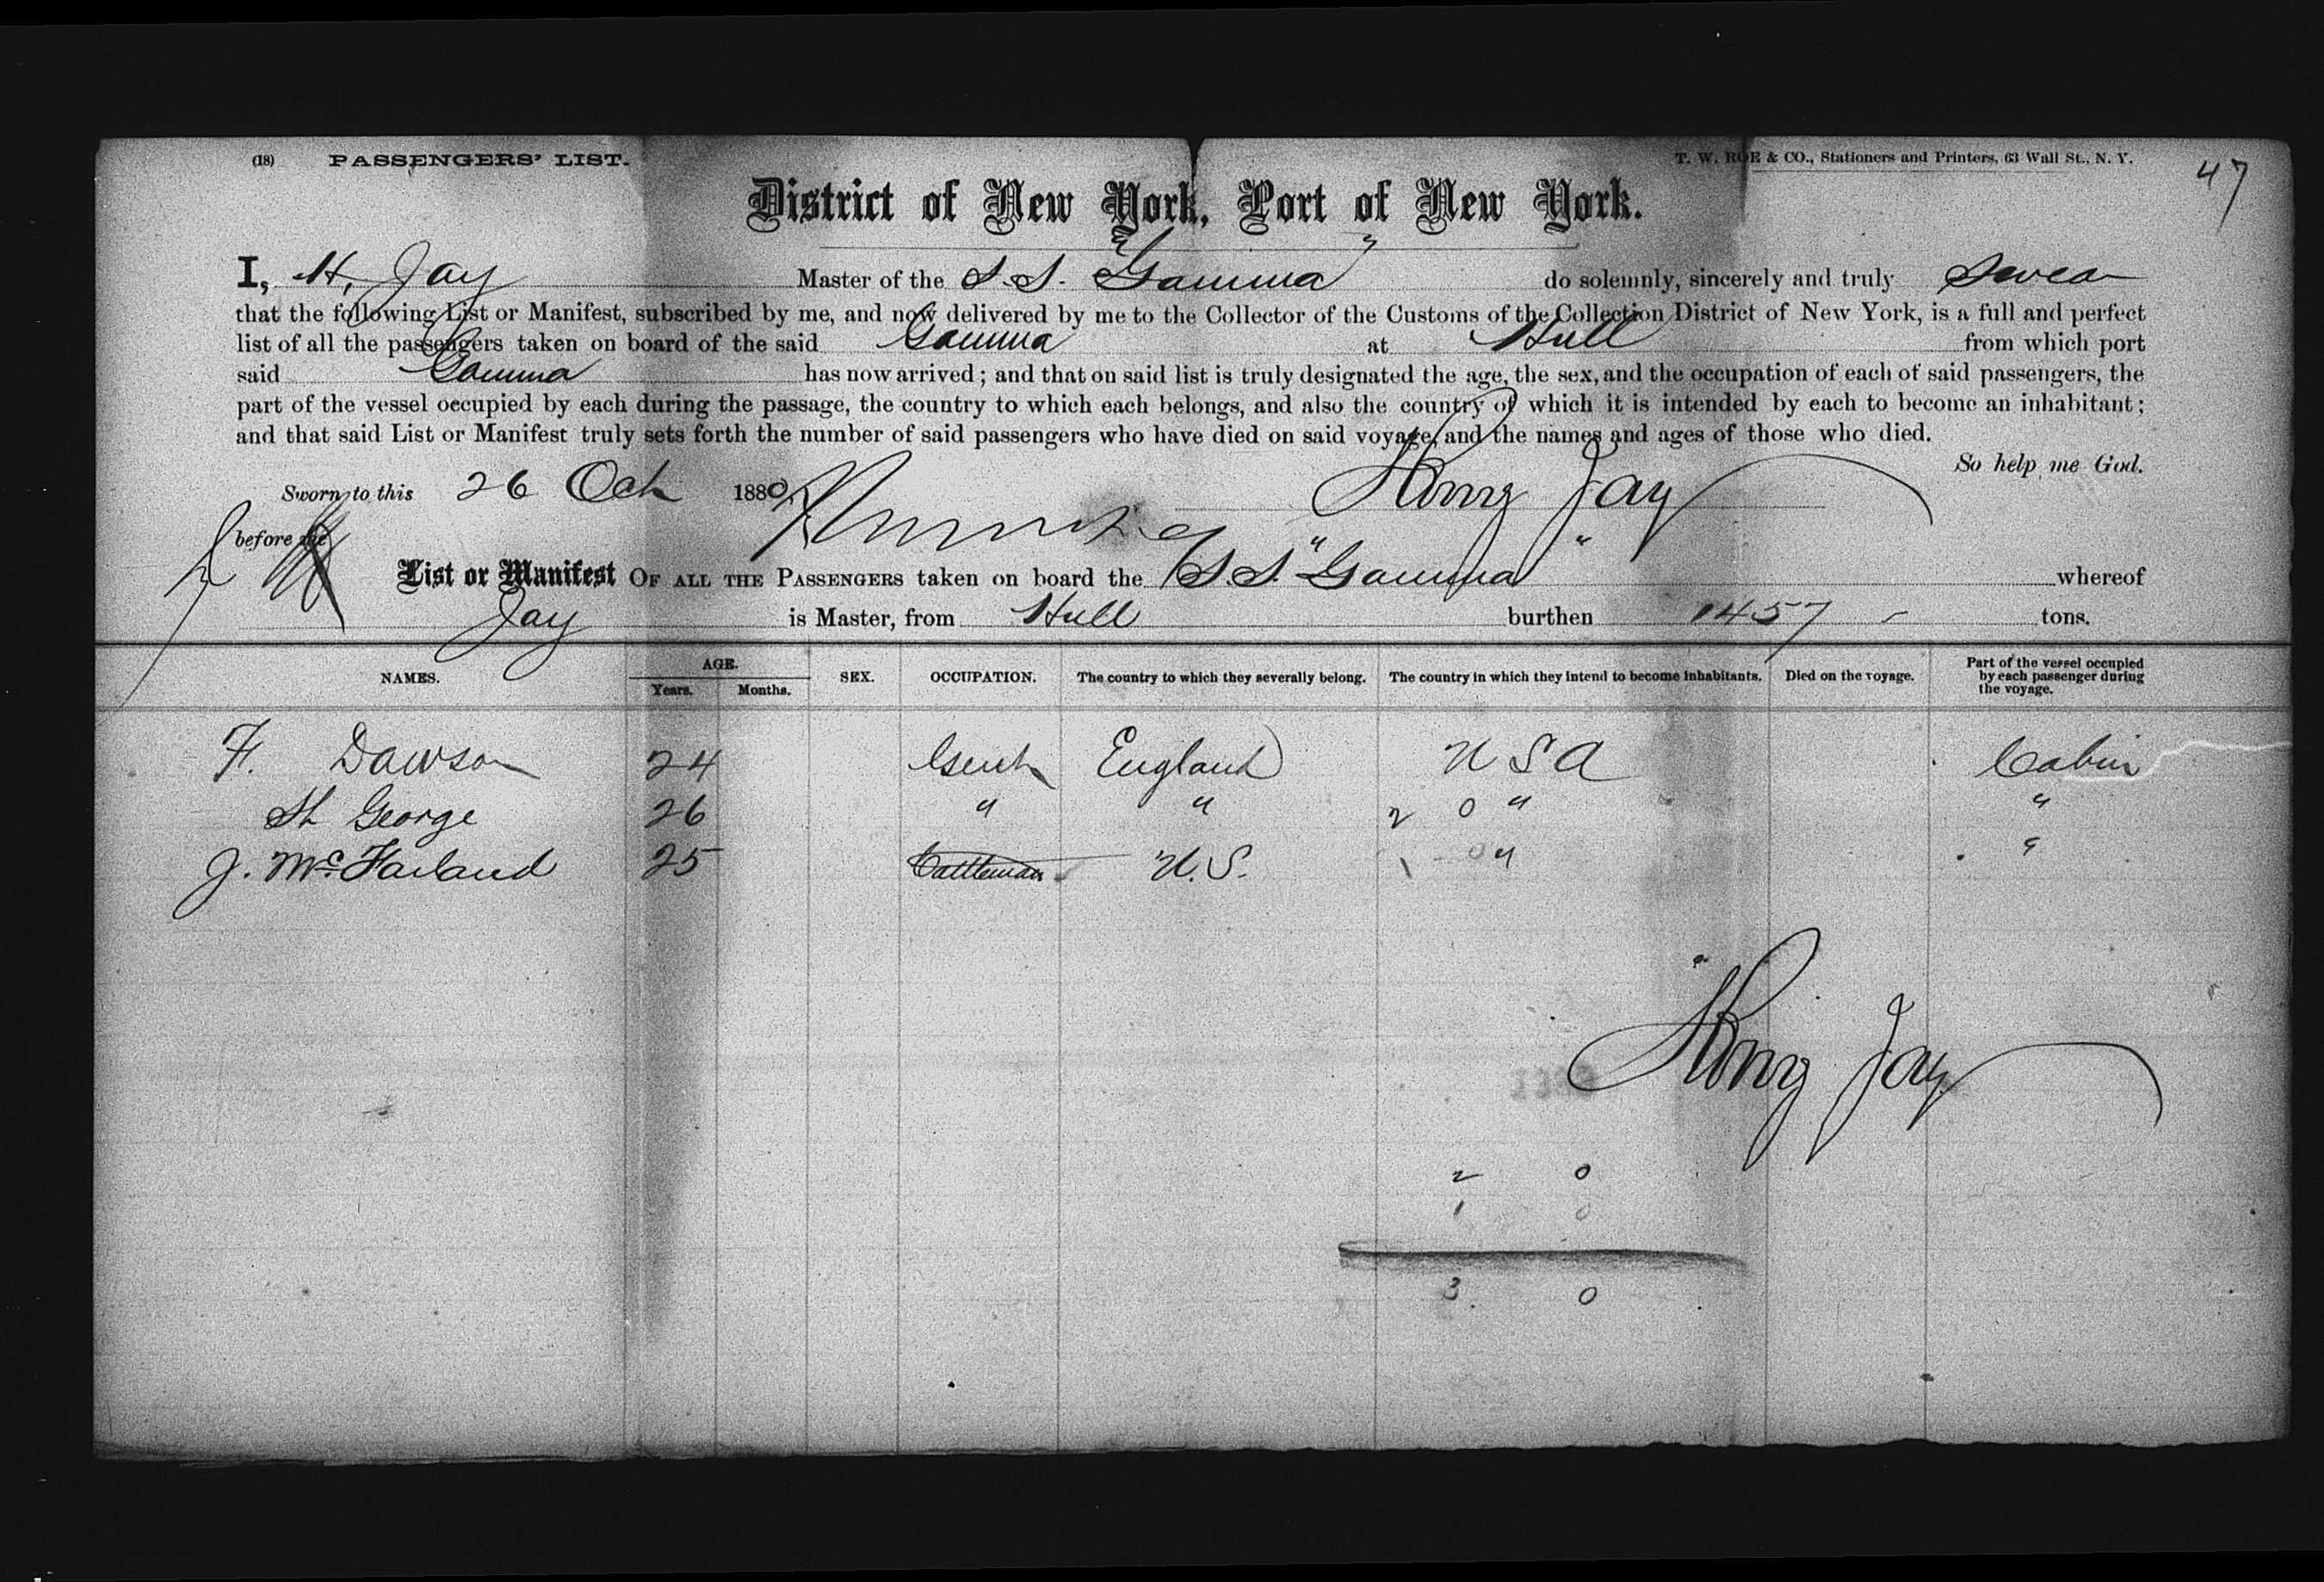 (18) PASSENGERS' LIST. T. W. ROE & CO., Stationers and Printers, 63 Wall St., N. Y. 47
District of New York, Port of New York.
I, H. Jay Master of the S.S. "Gamma" do solemnly, sincerely and truly Swea
that the following List or Manifest, subscribed by me, and now delivered by me to the Collector of the Customs of the Collection District of New York, is a full and perfect
list of all the passengers taken on board of the said Gamma at Hull from which port
said Gamma has now arrived; and that on said list is truly designated the age, the sex, and the occupation of each of said passengers, the
part of the vessel occupied by each during the passage, the country to which each belongs, and also the country of which it is intended by each to become an inhabitant;
and that said List or Manifest truly sets forth the number of said passengers who have died on said voyage, and the names and ages of those who died.
So help me God.
Sworn to this 26 Oct 1880 Jay
before me
List or Manifest OF ALL THE PASSENGERS taken on board the S.S. "Gamma" whereof
Jay is Master, from Hull burthen 1457 tons.
NAMES. AGE. Years. Months. SEX. OCCUPATION. The country to which they severally belong. The country in which they intend to become inhabitants. Died on the voyage. Part of the vessel occupied by each passenger during the voyage.
F. Dawson 24 Gent England U S A Cabin
St George 26 " " 2 0 " "
J. McFarland 25 Cattleman U.S. 1 0 " "
Jay
2 0
1 0
3 0